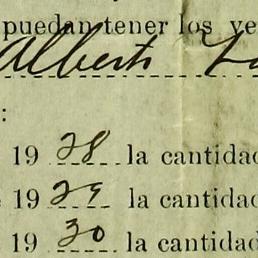 puedan tener los ve
Alberto
:
19 28 la cantidad
19 29 la cantidad
19 30 la cantidad